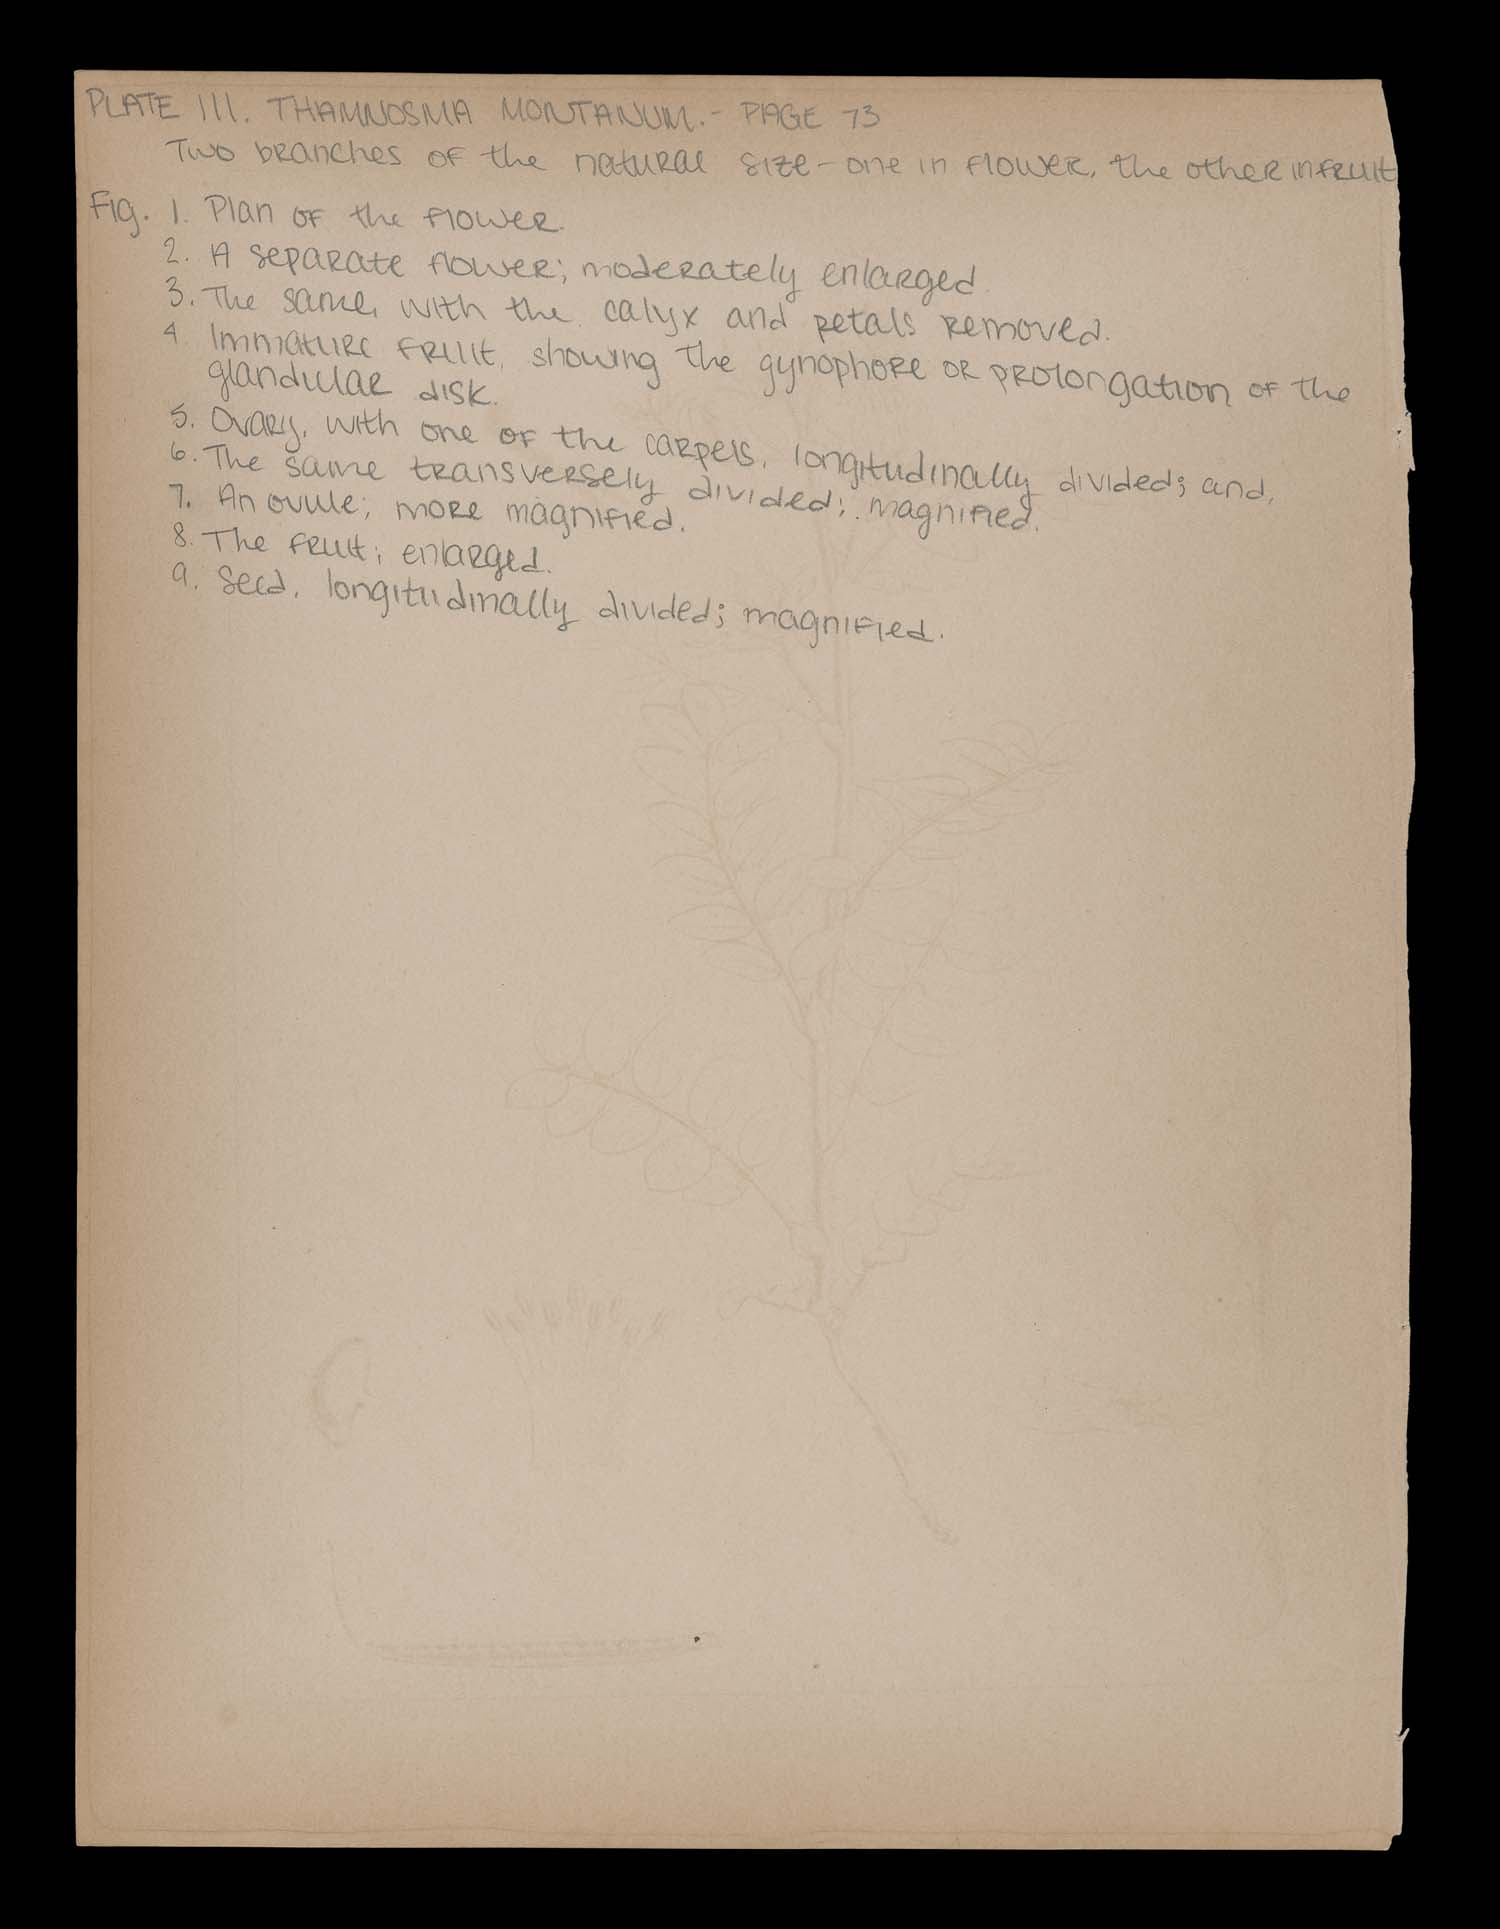 PLATE III. THAMNOSMA MONTANUM.- PAGE 73
Two branches of the natural size - one in flower, the other in fruit
Fig. 1. Plan of the flower.
2. A separate flower; moderately enlarged.
3. The same, with the calyx and petals removed.
4. Immature fruit, showing the gynophore or prolongation of the
glandular disk.
5. Ovary, with one of the carpels, longitudinally divided; and,
6. The same transversely divided; magnified.
7. An ovule; more magnified.
8. The fruit; enlarged.
9. Seed, longitudinally divided; magnified.